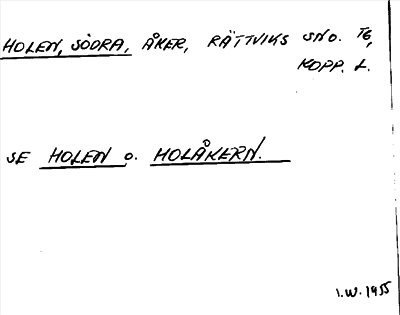 HOLEN, SÖDRA, ÅKER, RÄTTVIKS SND. TG,
KOPP. L.
SE HOLEN O. HOLÅKERN.
I.W. 1955